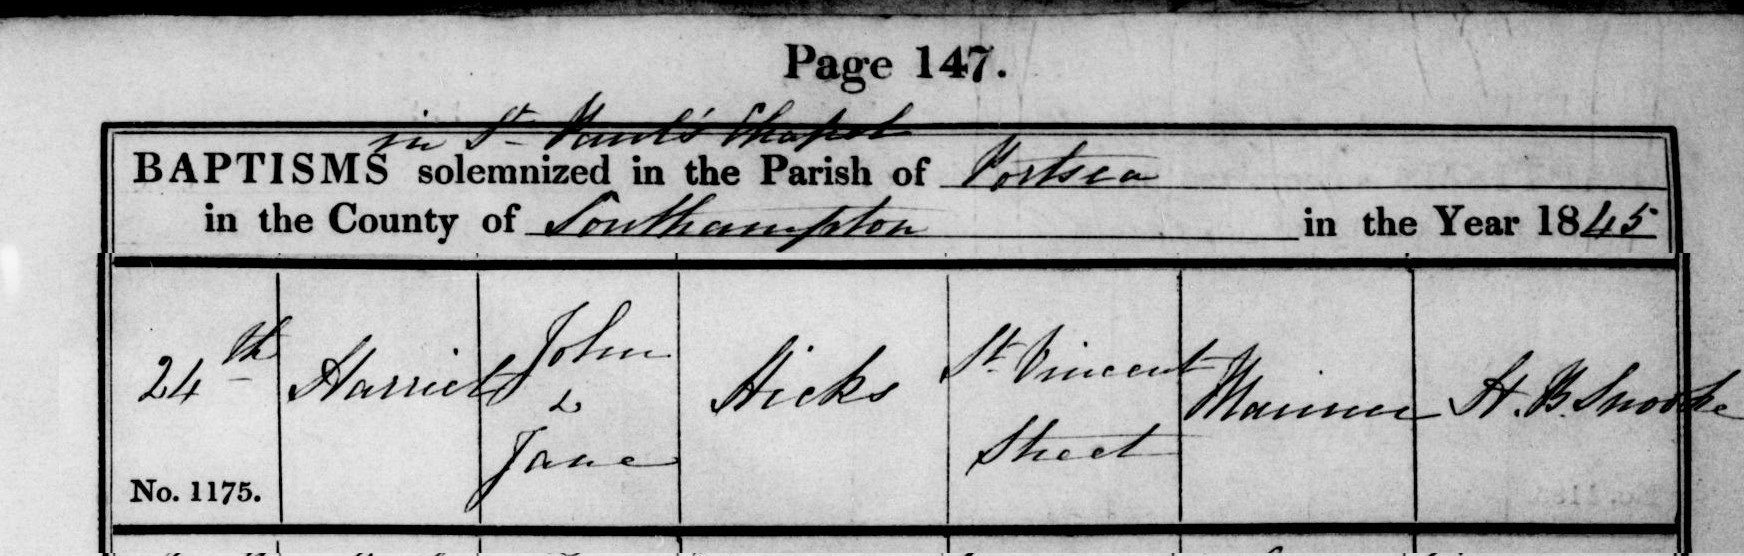 Page 147.
in St Paul's Chapel
BAPTISMS solemnized in the Parish of Portsea
in the County of Southampton in the Year 1845
24th Harriet John & Jane Hicks St Vincent Street Mariner H. B. Snooke
No. 1175.